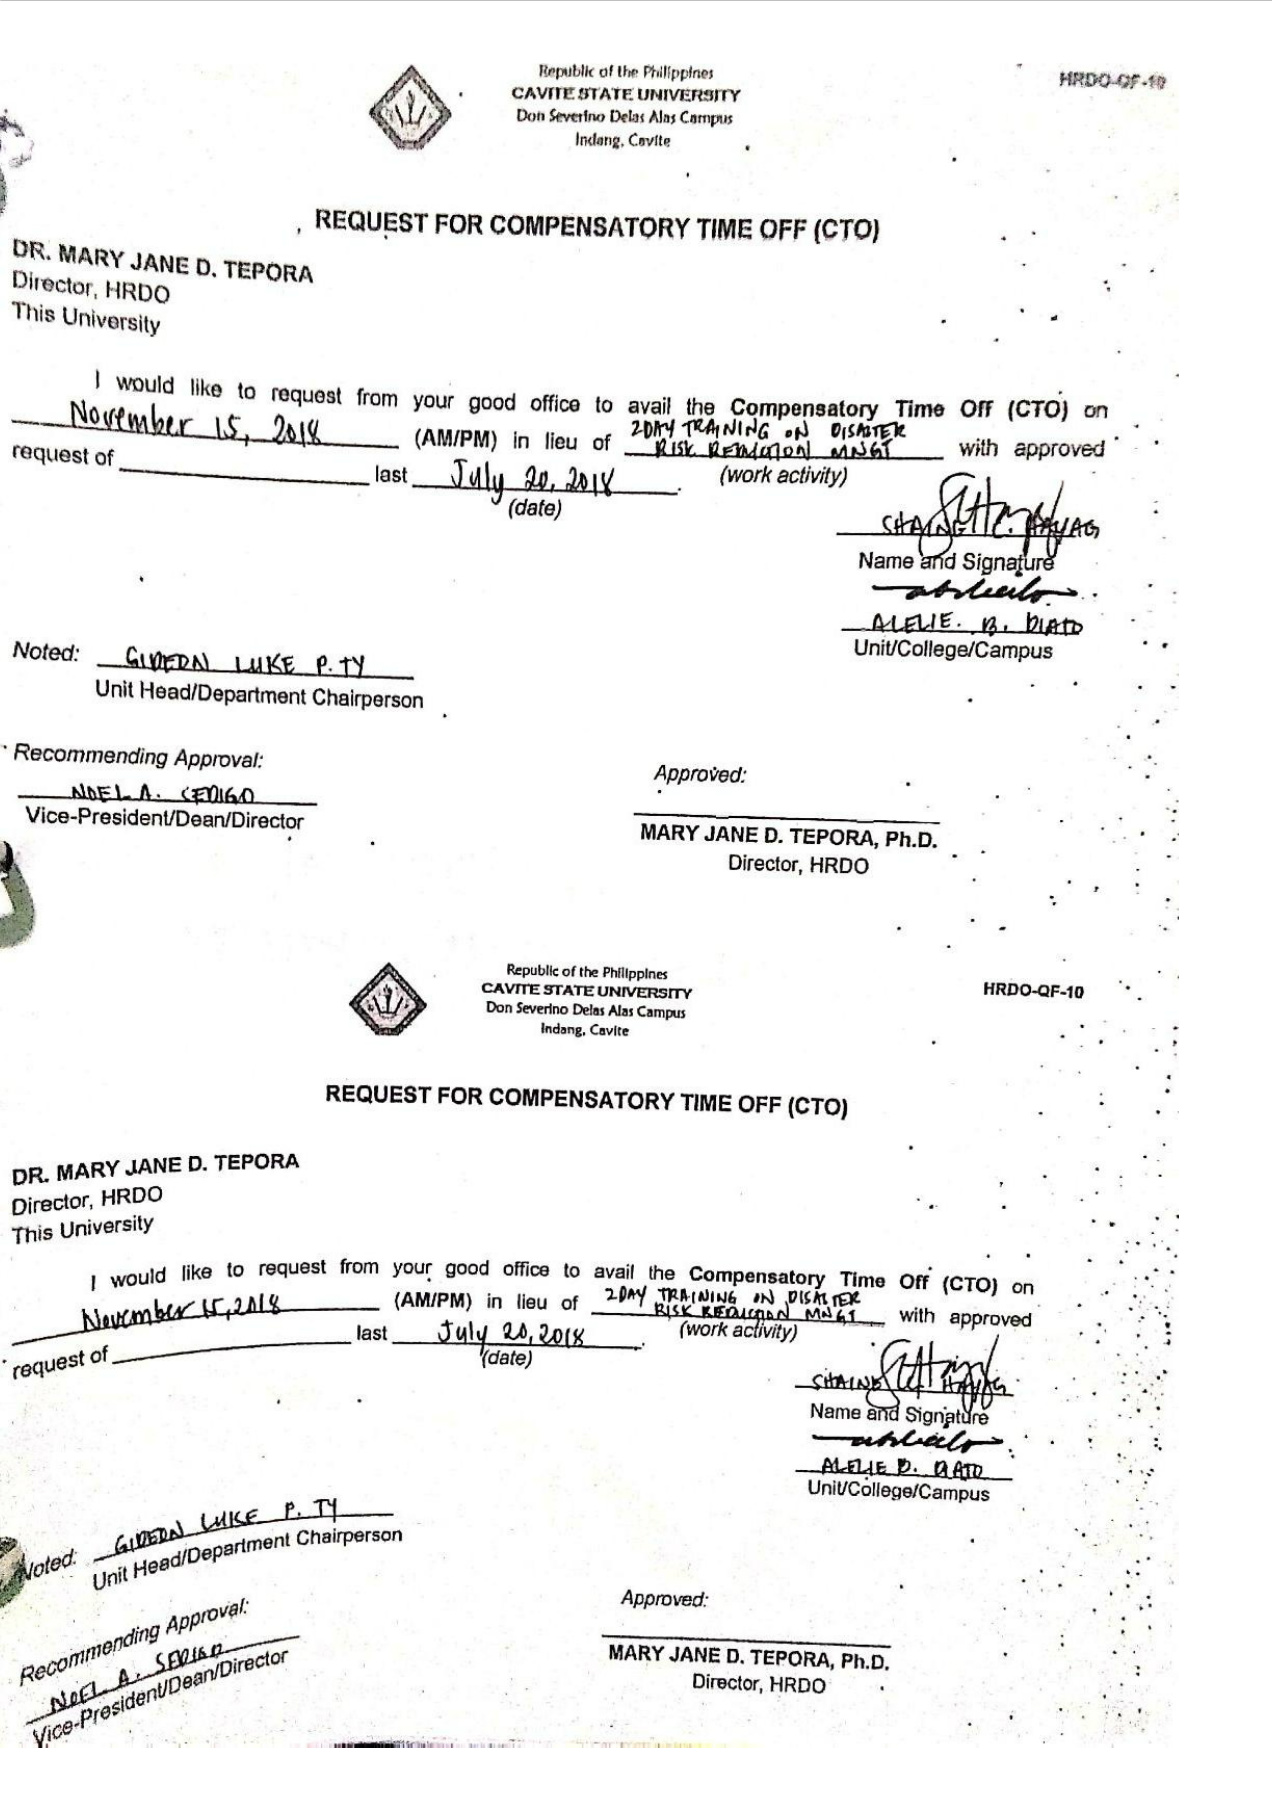 Republic of the Philippines
HRDO-QF-10
CAVITE STATE UNIVERSITY
Don Severino Delas Alas Campus
Indang, Cavite
REQUEST FOR COMPENSATORY TIME OFF (CTO)
DR. MARY JANE D. TEPORA
Director, HRDO
This University
I would like to request from your good office to avail the Compensatory Time Off (CTO) on
November 15, 2018 (AM/PM) in lieu of 2DAY TRAINING ON DISASTER
RISK REDUCTION MNGT with approved
request of last July 20, 2018 (work activity)
(date)
SHAINE C. HAYAG
Name and Signature
ALELIE. B. DIATO
Unit/College/Campus
Noted: GIDEON LUKE P. TY
Unit Head/Department Chairperson
Recommending Approval:
Approved:
NOEL A. SEDIGO
Vice-President/Dean/Director
MARY JANE D. TEPORA, Ph.D.
Director, HRDO
Republic of the Philippines
HRDO-QF-10
CAVITE STATE UNIVERSITY
Don Severino Delas Alas Campus
Indang, Cavite
REQUEST FOR COMPENSATORY TIME OFF (CTO)
DR. MARY JANE D. TEPORA
Director, HRDO
This University
I would like to request from your good office to avail the Compensatory Time Off (CTO) on
November 15, 2018 (AM/PM) in lieu of 2DAY TRAINING ON DISASTER
RISK REDUCTION MNGT with approved
request of last July 20, 2018 (work activity)
(date)
SHAINE HAYAG
Name and Signature
ALELIE B. DIATO
Unit/College/Campus
Noted: GIDEON LUKE P. TY
Unit Head/Department Chairperson
Recommending Approval:
Approved:
NOEL A. SEDIGO
Vice-President/Dean/Director
MARY JANE D. TEPORA, Ph.D.
Director, HRDO